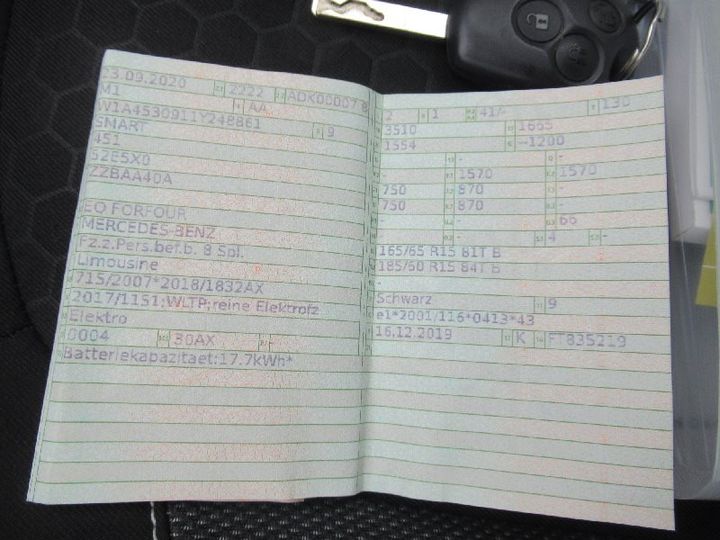 23.09.2020 2222 ADK00007 8
M1 AA
W1A4530911Y248861 9
SMART
451
S2E5X0
ZZBAA40A
EQ FORFOUR
MERCEDES-BENZ
Fz.z.Pers.bef.b. 8 Spl.
Limousine
715/2007*2018/1832AX
2017/1151;WLTP;reine Elektrofz
Elektro
0004 30AX
Batteriekapazitaet:17.7kWh*
2 1 41/- 130
3510 1665
1554 -1200
- -
- 1570 1570
750 870 -
750 870 -
- - 66
- - 4 -
165/65 R15 81T B
185/60 R15 84T B
-
Schwarz 9
e1*2001/116*0413*43
16.12.2019 K FT835219